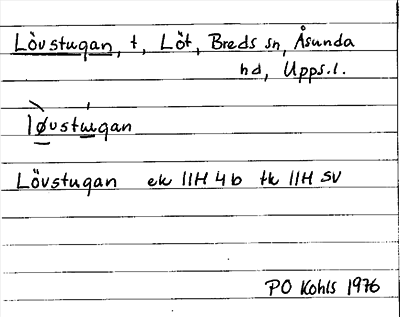 Lövstugan, t, Löt, Breds sn, Åsunda
hd, Upps.l.
løvstɯgan
Lövstugan ek 11H 4b tk 11H SV
PO Kohls 1976